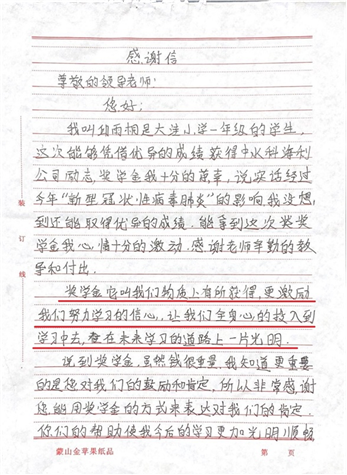 感谢信
尊敬的领导老师：
您好：
我叫 是大洼小学一年级的学生，
这次能够凭借优异的成绩获得中水科海利
公司励志奖学金我十分的荣幸，说实话经过
今年“新型冠状性病毒肺炎”的影响我没想
到还能取得优异的成绩。能拿到这次奖奖
学金我心情十分的激动。感谢老师辛勤的教
导和付出。
奖学金它叫我们物质上有所获得，更激励
我们努力学习的信心，让我们全身心的投入到
学习中去，在未来学习的道路上一片光明。
说到奖学金，虽然钱很重要，我知道更重要
的是您对我们的鼓励和肯定，所以非常感谢
您能用奖学金的方式来表达对我们的肯定。
你们的帮助使我今后的学习更加光明顺畅
装
订
线
蒙山金苹果纸品
第 页